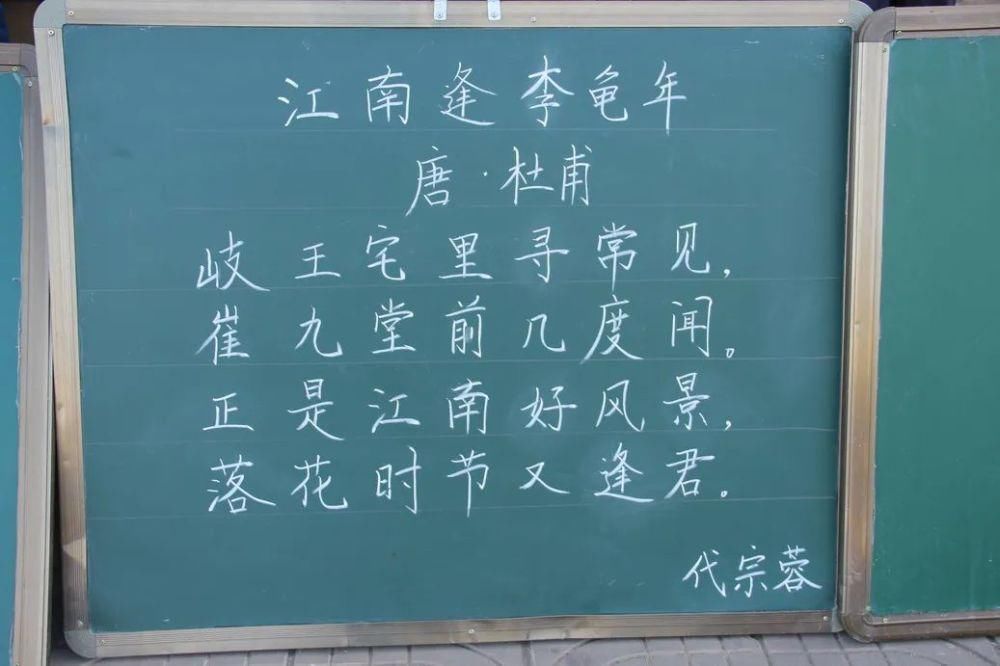 江南逢李龟年
唐·杜甫
岐王宅里寻常见，
崔九堂前几度闻。
正是江南好风景，
落花时节又逢君。
代宗蓉